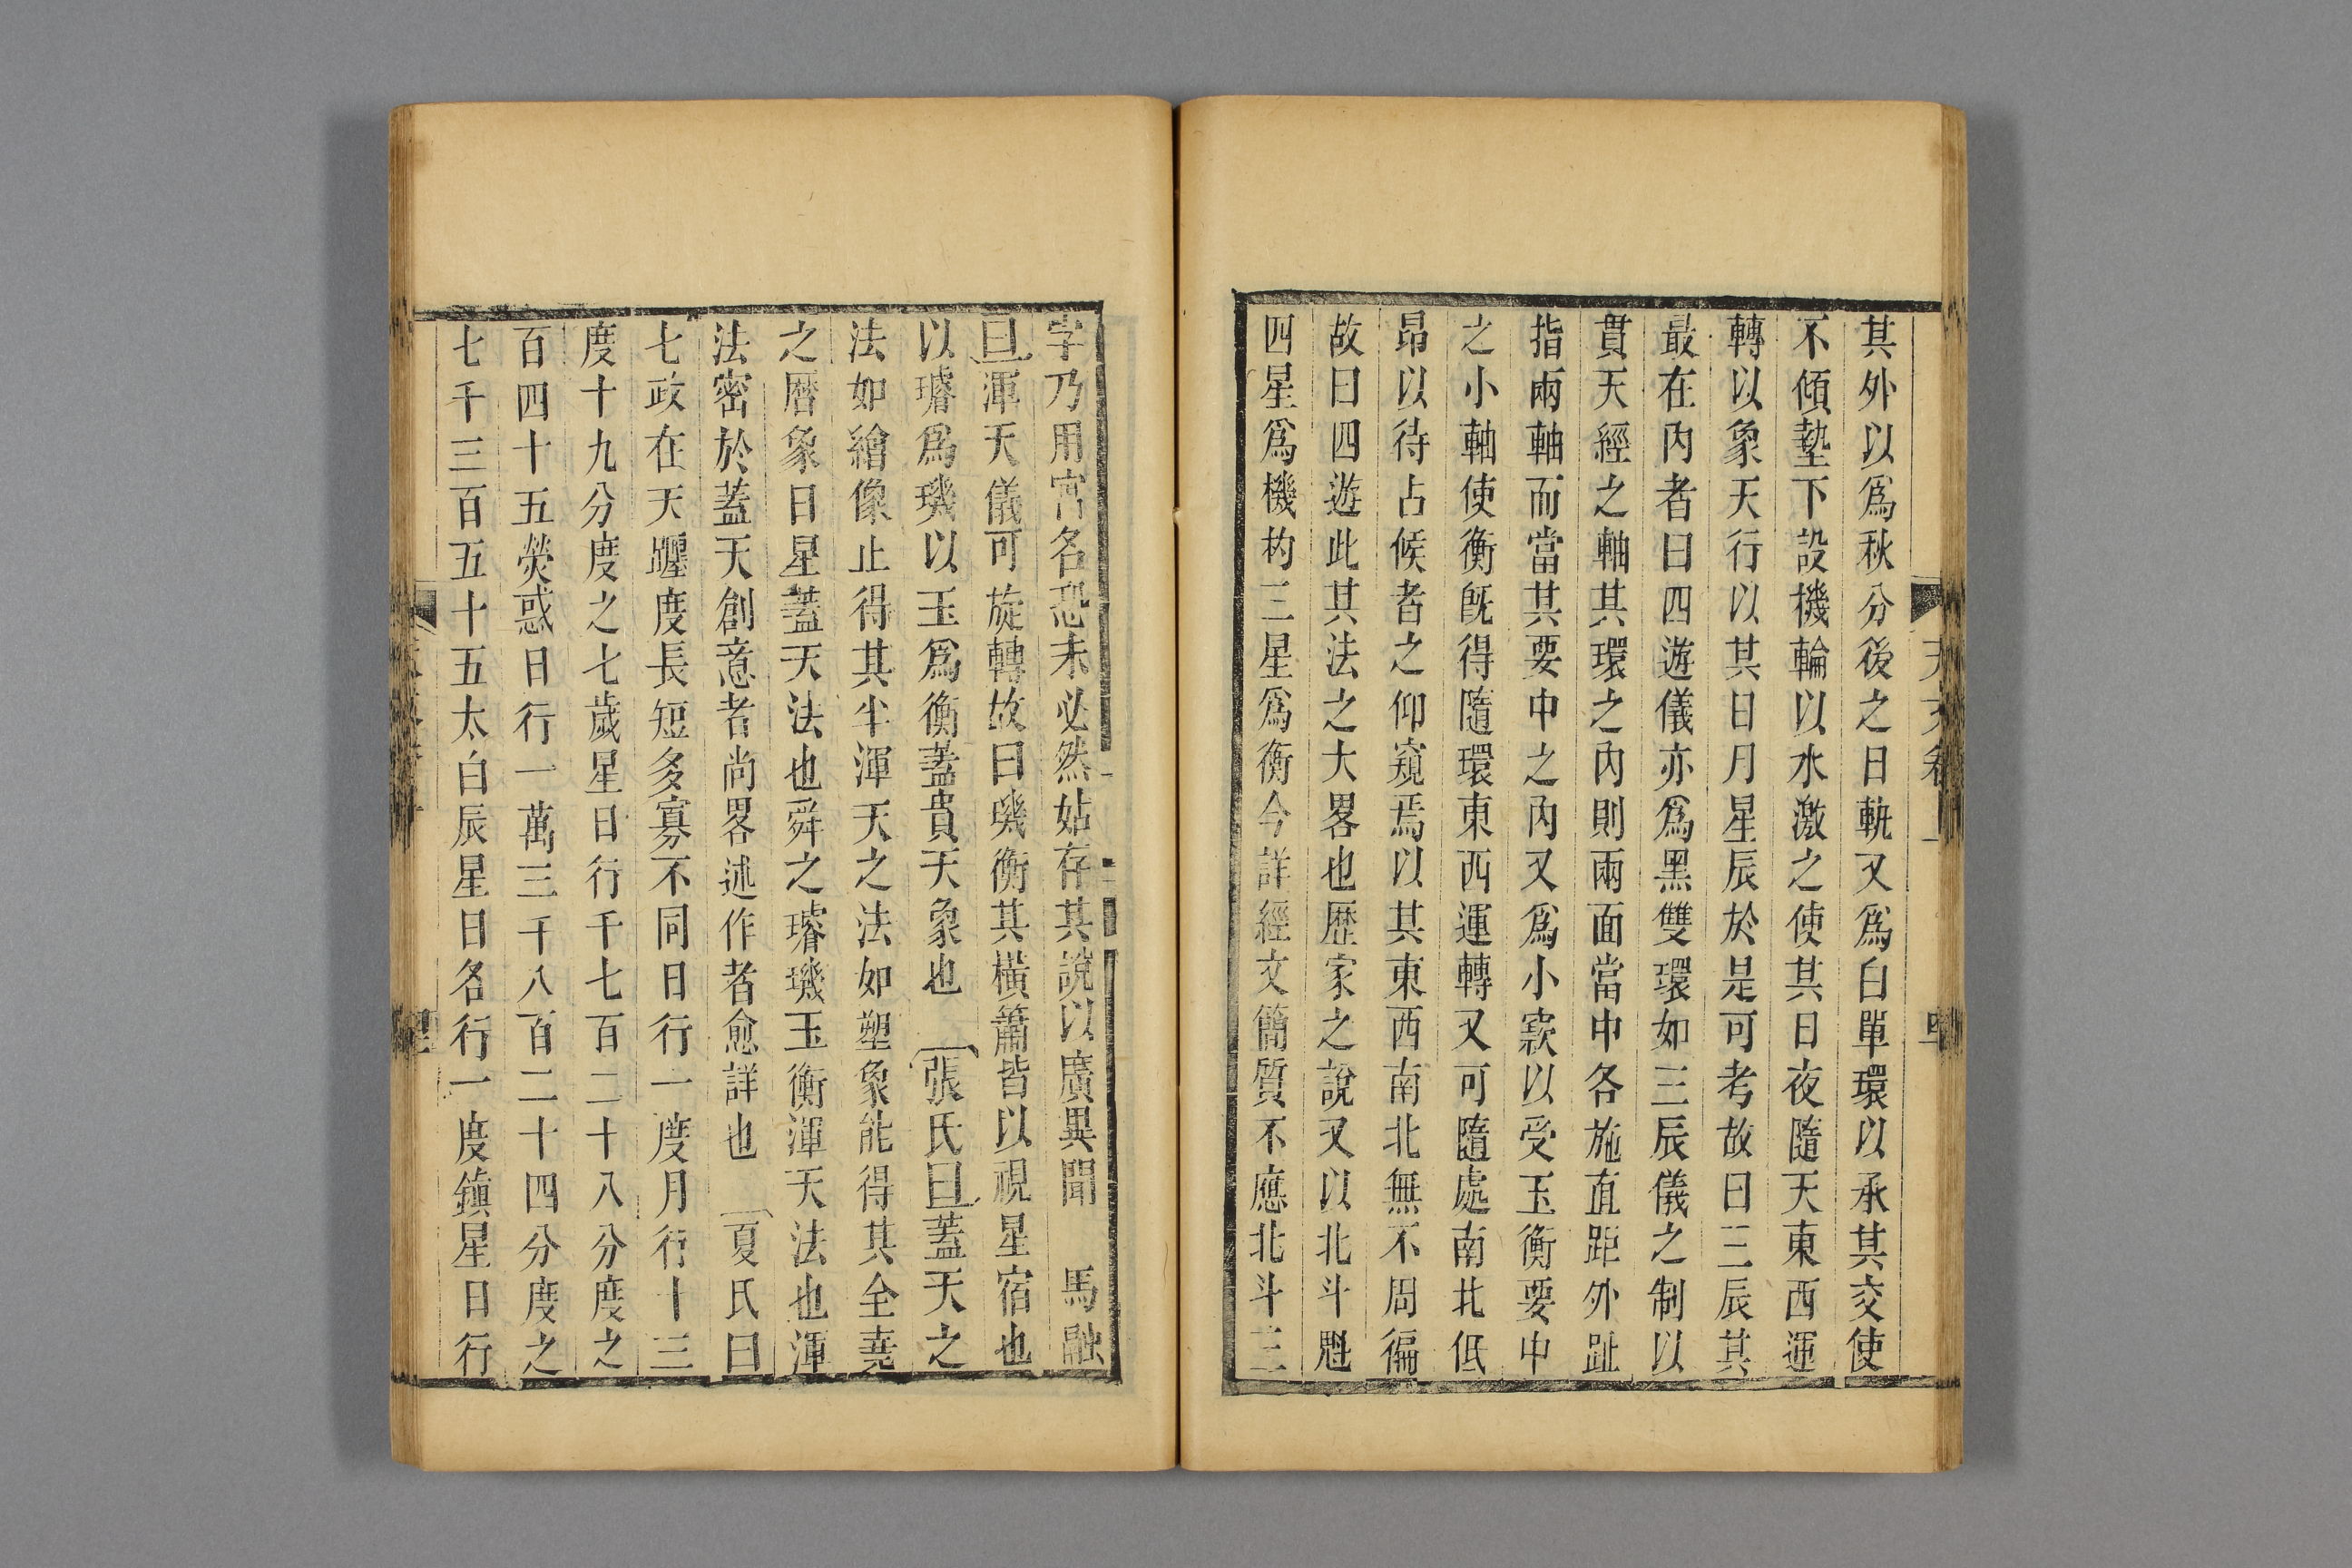 其外以爲秋分後之日軌又爲白單環以承其交使
不傾墊下設機輪以水激之使其日夜隨天東西運
轉以象天行以其日月星辰於是可考故曰三辰其
最在内者曰四遊儀亦爲黑雙環如三辰儀之制以
貫天經之軸其環之内則兩面當中各施直距外趾
指兩軸而當其要中之内又爲小窾以受玉衡要中
之小軸使衡旣得隨環東西運轉又可隨處南北低
昂以待占候者之仰窺焉以其東西南北無不周徧
故曰四遊此其法之大畧也歷家之說又以北斗魁
四星爲機杓三星爲衡今詳經文簡質不應北斗三
字乃用寓名恐未必然姑存其說以廣異聞　馬融
曰渾天儀可旋轉故曰璣衡其橫簫皆以視星宿也
以璿爲璣以玉爲衡蓋貴天象也　張氏曰蓋天之
法如繪像止得其半渾天之法如塑象能得其全堯
之曆象日星蓋天法也舜之璿璣玉衡渾天法也渾
法密於蓋天創意者尚畧述作者愈詳也　夏氏曰
七政在天躔度長短多寡不同日行一度月行十三
度十九分度之七歲星日行千七百二十八分度之
百四十五熒惑日行一萬三千八百二十四分度之
七千三百五十五太白辰星日各行一度鎮星日行